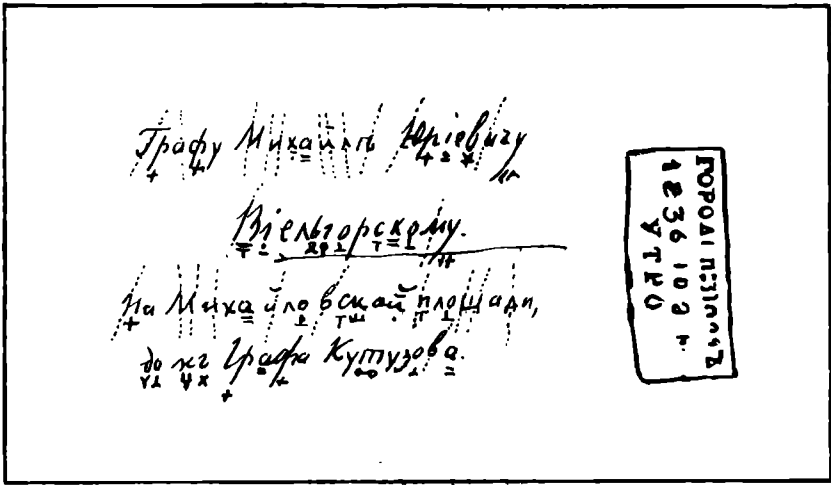 Графу Михайлъ Юріевичу
Віельгорскому.
На Михайловской площади,
до мъ Графа Кутузова.
1836
УТРО